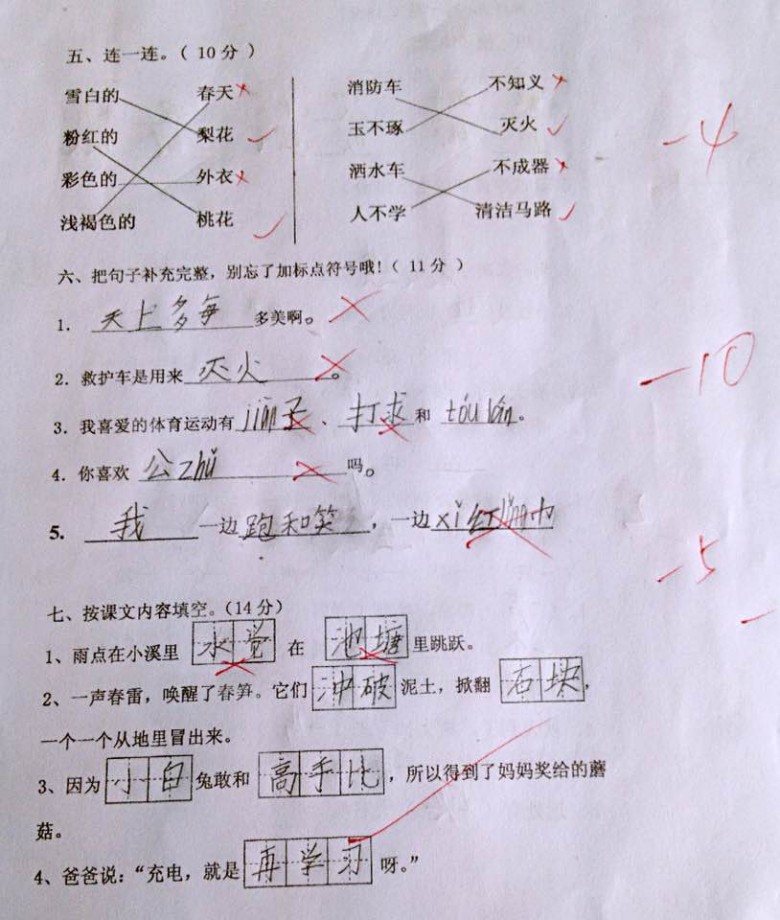 五、连一连。（10分）
雪白的 春天 消防车 不知义
粉红的 梨花 玉不琢 灭火
彩色的 外衣 洒水车 不成器
浅褐色的 桃花 人不学 清洁马路
-4
六、把句子补充完整，别忘了加标点符号哦！（11分）
1. 天上多每多美啊。
2. 救护车是用来灭火。
-10
3. 我喜爱的体育运动有jiàn子、打求和tóu lán。
4. 你喜欢公zhǔ吗。
5. 我一边跑和笑，一边xì红
-5
七、按课文内容填空。（14分）
1、雨点在小溪里水觉在池塘里跳跃。
2、一声春雷，唤醒了春笋。它们冲破泥土，掀翻石块，
一个一个从地里冒出来。
3、因为小白兔敢和高手比，所以得到了妈妈奖给的蘑
菇。
4、爸爸说：“充电，就是再学习呀。”